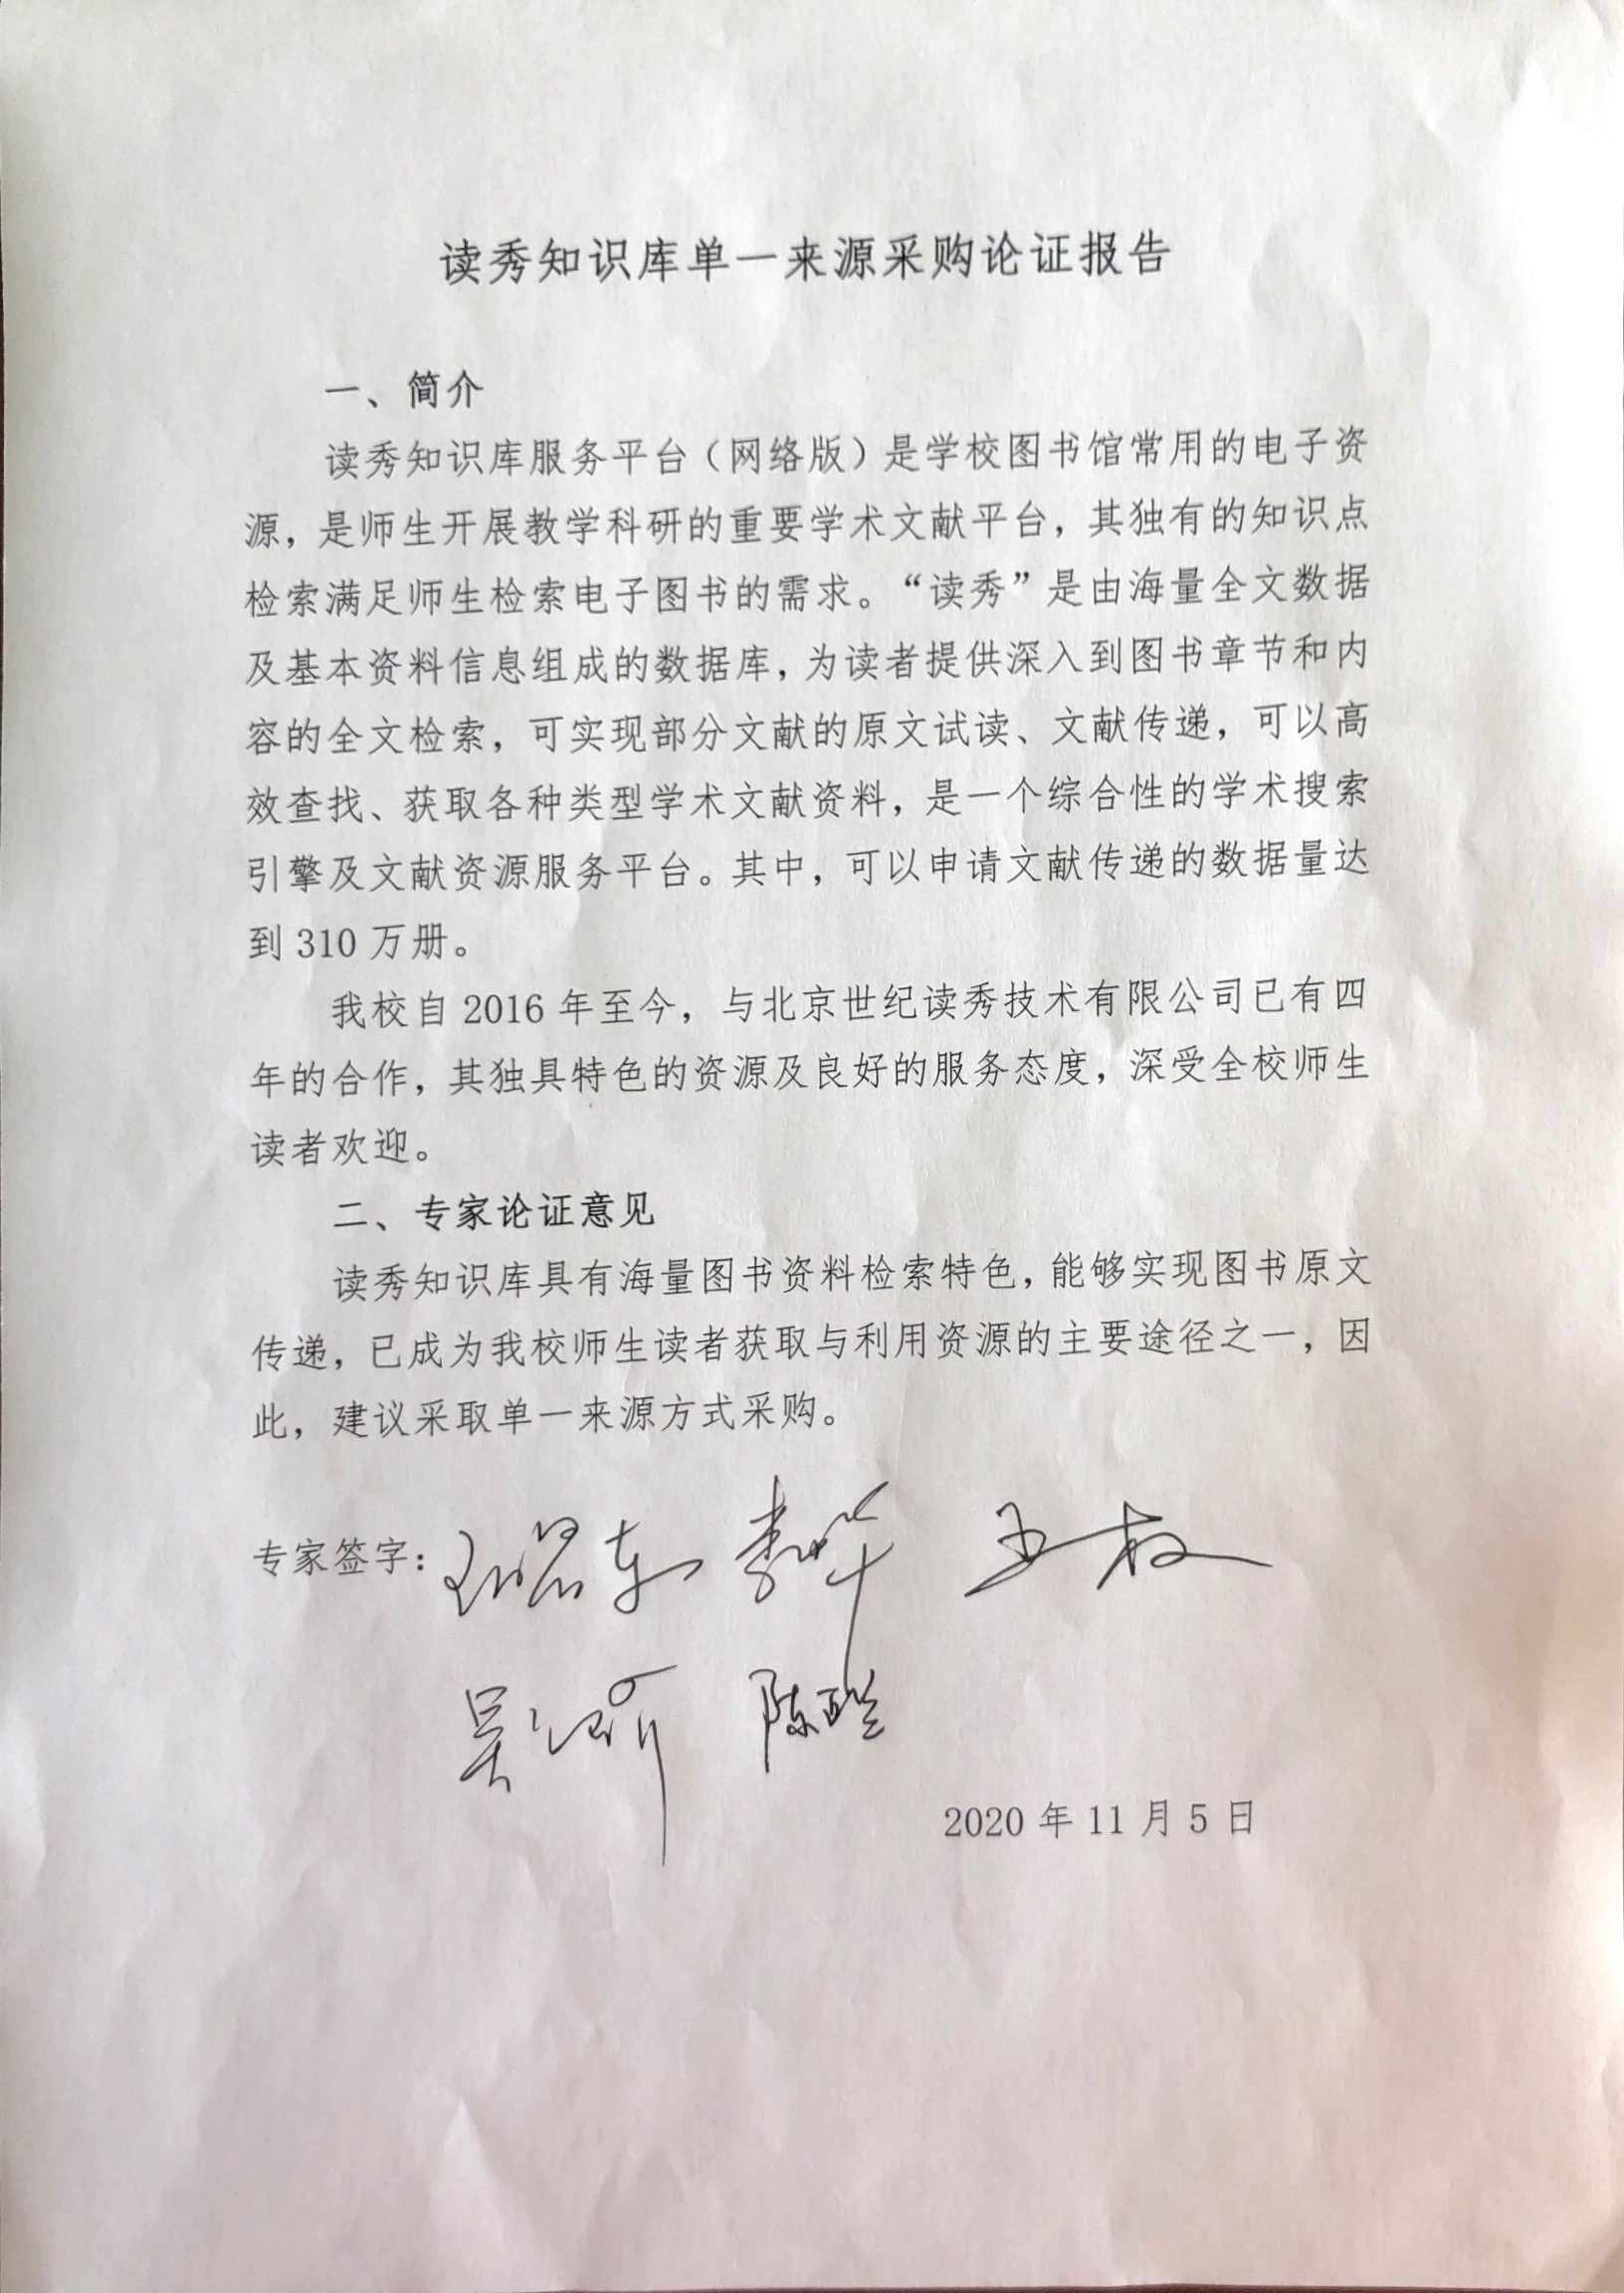 读秀知识库单一来源采购论证报告
一、简介
读秀知识库服务平台（网络版）是学校图书馆常用的电子资
源，是师生开展教学科研的重要学术文献平台，其独有的知识点
检索满足师生检索电子图书的需求。“读秀”是由海量全文数据
及基本资料信息组成的数据库，为读者提供深入到图书章节和内
容的全文检索，可实现部分文献的原文试读、文献传递，可以高
效查找、获取各种类型学术文献资料，是一个综合性的学术搜索
引擎及文献资源服务平台。其中，可以申请文献传递的数据量达
到 310 万册。
我校自 2016 年至今，与北京世纪读秀技术有限公司已有四
年的合作，其独具特色的资源及良好的服务态度，深受全校师生
读者欢迎。
二、专家论证意见
读秀知识库具有海量图书资料检索特色，能够实现图书原文
传递，已成为我校师生读者获取与利用资源的主要途径之一，因
此，建议采取单一来源方式采购。
专家签字：
2020 年 11 月 5 日